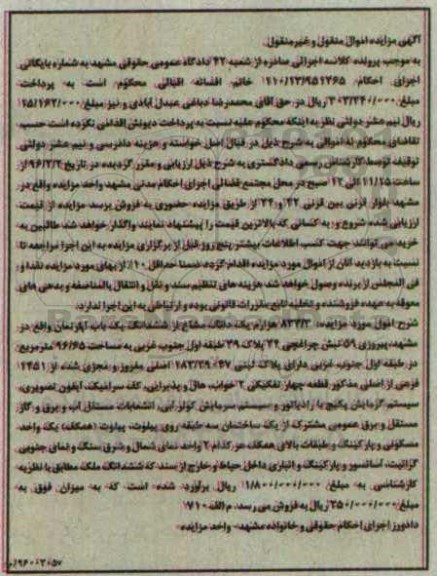 آگهی مزایده اموال منقول و غیرمنقول
به موجب پرونده کلاسه اجرائی صادره از شعبه ۴۲ دادگاه عمومی حقوقی مشهد به شماره بایگانی
اجرای احکام ۲۱۰/۲۳/۹۵۱۳۶۵ خانم افسانه اقبالی محکوم است به پرداخت
مبلغ ۳۰۳/۳۴۰/۰۰۰ ریال در حق آقای محمدرضا دباغی عبدل آبادی و نیز مبلغ ۱۵/۱۶۲/۰۰۰
ریال نیم عشر دولتی نظر به اینکه محکوم علیه نسبت به پرداخت دیونش اقدامی نکرده است حسب
تقاضای محکوم له اموالی به شرح ذیل در قبال اصل خواسته و هزینه دادرسی و نیم عشر دولتی
توقیف توسط کارشناس رسمی دادگستری به شرح ذیل ارزیابی و مقرر گردیده در تاریخ ۹۶/۳/۲ از
ساعت ۱۱/۲۵ الی ۱۲ صبح در محل مجتمع قضائی اجرای احکام مدنی مشهد واحد مزایده واقع در
مشهد بلوار قرنی بین قرنی ۲۲ و ۲۴ از طریق مزایده حضوری به فروش برسد مزایده از قیمت
ارزیابی شده شروع و به کسانی که بالاترین قیمت را پیشنهاد نمایند واگذار خواهد شد طالبین به
خرید می توانند جهت کسب اطلاعات بیشتر پنج روز قبل از برگزاری مزایده به این اجرا مراجعه تا
نسبت به بازدید آنان از اموال مورد مزایده اقدام گردد ضمنا حداقل ۱۰٪ از بهای مورد مزایده نقدا و
فی المجلس از برنده وصول خواهد شد هزینه های تنظیم سند و نقل و انتقال بالمناصفه و بدهی های
معوقه به عهده فروشنده و تخلیه تابع مقررات قانونی بوده و ارتباطی به این اجرا ندارد.
شرح اموال مورد مزایده: ۸۳۳/۳ هزارم یک دانگ مشاع از ششدانگ یک باب آپارتمان واقع در
مشهد پیروزی ۵۹ نبش چراغچی ۲۴ پلاک ۳۹ طبقه اول جنوب غربی به مساحت ۹۶/۶۵ مترمربع
در طبقه اول جنوب غربی دارای پلاک ثبتی ۱۸۳/۳۹۰۴۷ اصلی مفروز و مجزی شده از ۱۲۴۵۱
فرعی از اصلی مذکور قطعه چهار تفکیکی ۲ خواب، هال و پذیرایی، کف سرامیک، آیفون تصویری،
سیستم گرمایش پکیج با رادیاتور و سیستم سرمایش کولر آبی، انشعابات مستقل آب و برق و گاز
مستقل و برق عمومی مشترک از یک ساختمان سه طبقه روی پیلوت، پیلوت (همکف) یک واحد
مسکونی و پارکینگ و طبقات بالای همکف هر کدام ۲ واحد نمای شمال و شرق سنگ و نمای جنوبی
گرانیت، آسانسور و پارکینگ و انباری داخل حیاط و خارج از سند که ششدانگ ملک مطابق با نظریه
کارشناسی به مبلغ ۱/۸۰۰/۰۰۰/۰۰۰ ریال برآورد شده است که به میزان فوق به
مبلغ ۲۵۰/۰۰۰/۰۰۰ ریال به فروش می رسد. م الف ۱۷۱۰
دادورز اجرای احکام حقوقی و خانواده مشهد- واحد مزایده